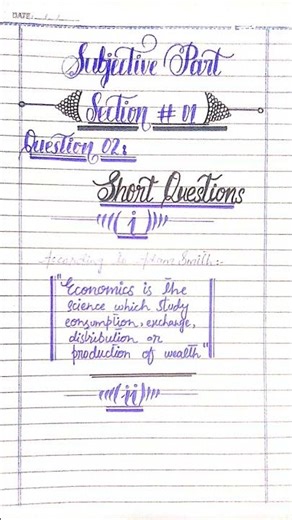 DATE:
Subjective Part
Section # 01
Question 02:
Short Questions
((((i))))
According to Adam Smith:-
"Economics is the
science which study
consumption, exchange,
distribution or
production of wealth"
((((ii))))